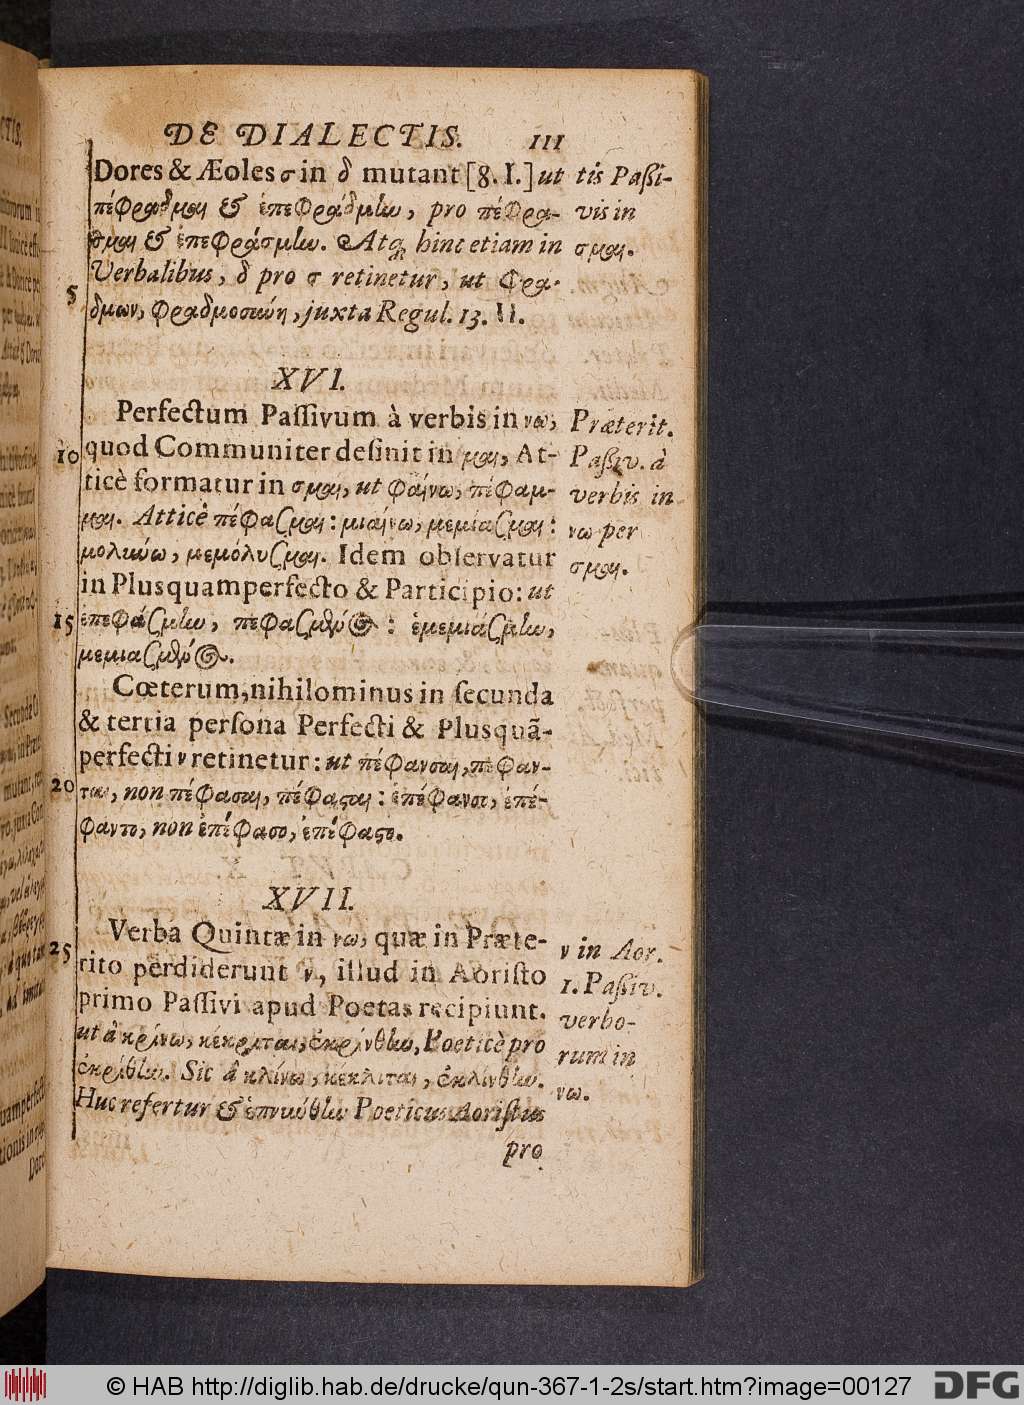 DE DIALECTIS. 111
Dores & Æoles σ in δ mutant [8. I.] ut
πέφραδμαι & ἐπεφράδμην, pro πέφρα-
σμαι & ἐπεφράσμην. Atq; hinc etiam in
Verbalibus, δ pro σ retinetur, ut φρα-
δμων, φραδμοσύνη, juxta Regul. 13. II.
tis Paßi-
vis in
σμαι.
5
XVI.
Perfectum Paſſivum à verbis in νω,
quod Communiter deſinit in μαι, At-
ticè formatur in σμαι, ut φαίνω, πέφαμ-
μαι. Atticè πέφασμαι: μιαίνω, μεμίασμαι:
μολύνω, μεμόλυσμαι. Idem obſervatur
in Plusquamperfecto & Participio: ut
ἐπεφάσμην, πεφασμένος: ἐμεμιάσμην,
μεμιασμένος.
Præterit.
Paßiv. à
verbis in
νω per
σμαι.
10
15
Cœterum, nihilominus in ſecunda
& tertia perſona Perfecti & Plusquã-
perfecti ν retinetur: ut πέφανσαι, πέφαν-
ται, non πέφασαι, πέφασται: ἐπέφανσο, ἐπέ-
φαντο, non ἐπέφασο, ἐπέφαστο.
20
XVII.
Verba Quintæ in νω, quæ in Præte-
rito perdiderunt ν, illud in Aoriſto
primo Paſſivi apud Poetas recipiunt.
ut à κρίνω, κέκριται, ἐκρίνθην, Poeticè pro
ἐκρίθην. Sic à κλίνω, κέκλιται, ἐκλίνθην.
Huc refertur & ἐπνύνθην Poeticus Aoriſtus
25
ν in Aor.
1. Paßiv.
verbo-
rum in
νω.
pro
© HAB http://diglib.hab.de/drucke/qun-367-1-2s/start.htm?image=00127 DFG